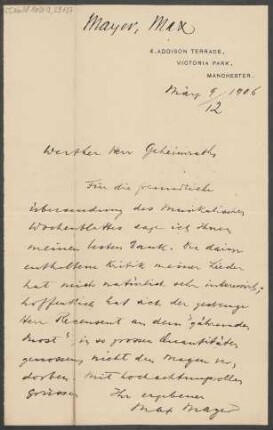 Mayer, Max
4, ADDISON TERRACE,
VICTORIA PARK,
MANCHESTER.
März 9/12 1906
Werther Herr Geheimrath
Für die freundliche
Übersendung des Musikalischen
Wochenblattes sage ich Ihnen
meinen besten Dank. Die darin
enthaltene Kritik meiner Lieder
hat mich natürlich sehr interessirt;
hoffentlich hat sich der gestrenge
Herr Recensent an dem "gährenden
Most", in so grossen Quantitäten
genossen, nicht den Magen ver,
dorben. Mit hochachtungsvollen
Grüssen Ihr ergebener
Max Mayer